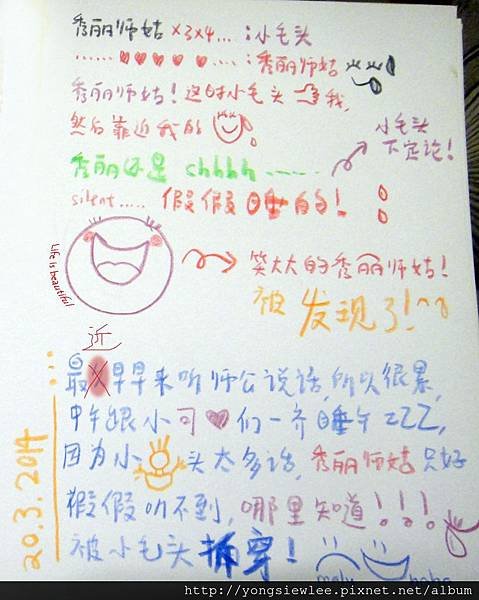 秀丽师姑 x3x4... :小毛头
...... ♥ ♥ ♥ ♥ ♥ .... :秀丽师姑
秀丽师姑！这时小毛头 我,
然后靠近我的
小毛头
不定论！
秀丽还是 chhhh......
silent..... 假假睡的！
Life is beautiful
笑大大的秀丽师姑！
被发现了！^^
近
最早早来听师公说话,所以很累,
中午跟小可♥们一齐睡午ZZZ,
因为小 头太多话,秀丽师姑只好
假假听不到,哪里知道!!!
被小毛头拆穿！
20.3.2014
malu
haha
http://yongsiewlee.pixnet.net/album